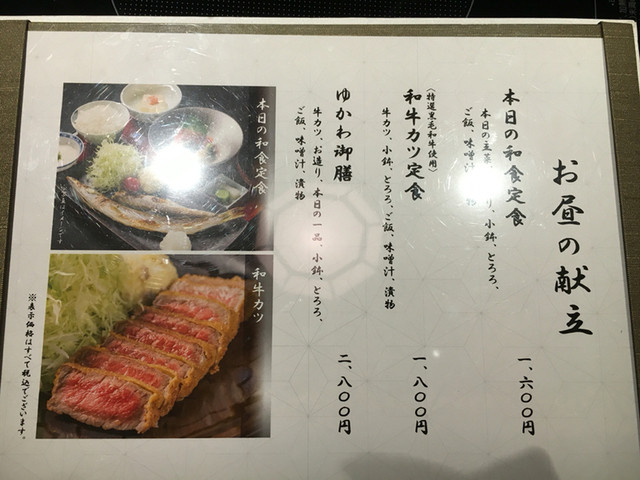 お昼の献立
本日の和食定食
本日の主菜、 り、小鉢、とろろ、
ご飯、味噌汁、 物
一、六〇〇円
(特選黒毛和牛使用)
和牛カツ定食
牛カツ、小鉢、とろろ、ご飯、味噌汁、漬物
一、八〇〇円
ゆかわ御膳
牛カツ、お造り、本日の一品、小鉢、とろろ、
ご飯、味噌汁、漬物
二、八〇〇円
本日の和食定食
和牛カツ
※表示価格はすべて税込でございます。